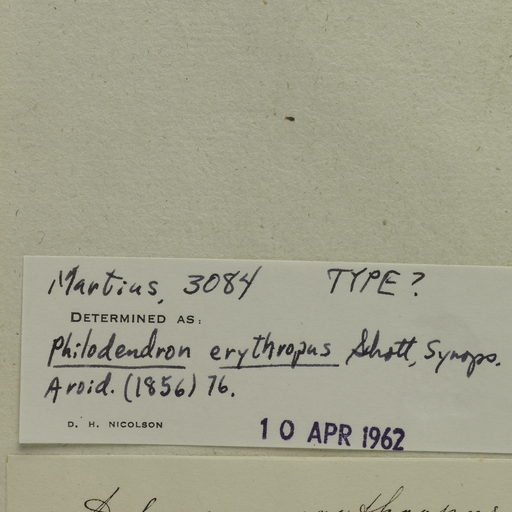 Martius, 3084 TYPE?
DETERMINED AS:
Philodendron erythropus Schott, Synops.
Aroid. (1856) 76.
D. H. NICOLSON 10 APR 1962